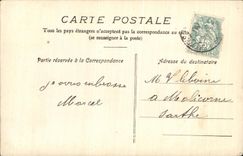 CARTE POSTALE
Tous les pays étrangers n'acceptent pas la correspondance au recto
(se renseigner à la poste)
Partie réservée à la Correspondance
Adresse du destinataire
je vous embrasse
Marcel
M.
à Malicorne
Sarthe